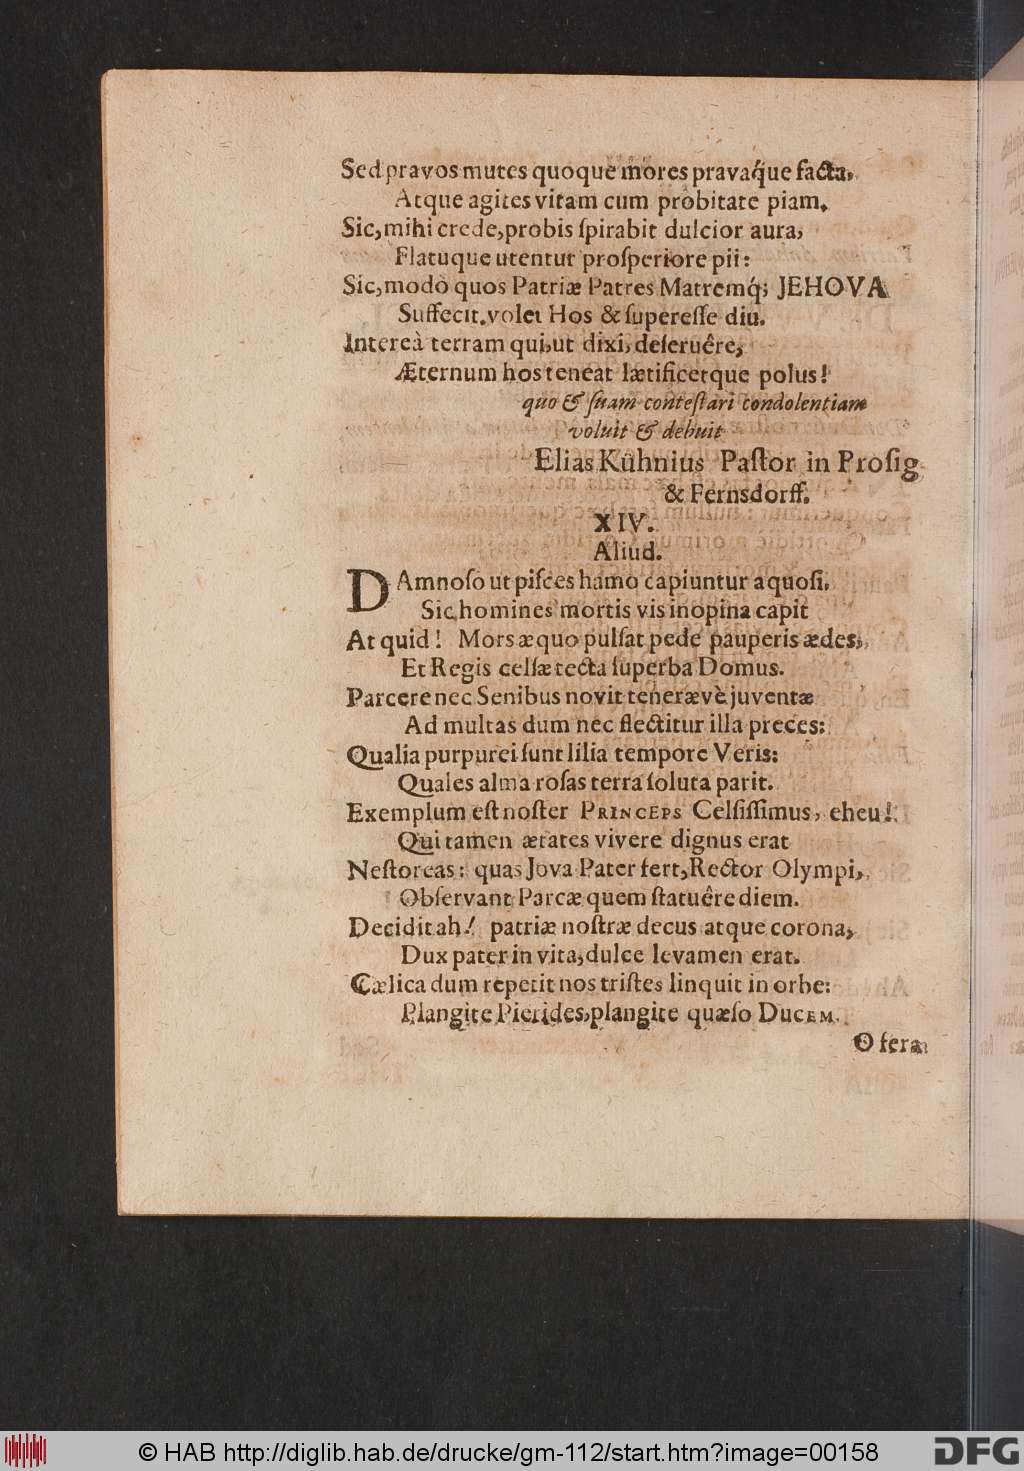 Sed pravos mutes quoque mores pravaq́ue facta,
Atque agites vitam cum probitate piam.
Sic, mihi crede, probis ſpirabit dulcior aura,
Flatuque utentur proſperiore pii:
Sic, modò quos Patriæ Patres Matremq́; JEHOVA
Suffecit, volet Hos & ſupereſſe diu.
Intereà terram qui, ut dixi, deſeruêre,
Æternum hos teneat lætificetque polus!
quo & ſuam conteſtari condolentiam
voluit & debuit
Elias Kühnius Paſtor in Proſig
& Fernsdorff.
XIV.
Aliud.
DAmnoſo ut piſces hamo capiuntur aquoſi,
Sic homines mortis vis inopina capit
At quid! Mors æquo pulſat pede pauperis ædes,
Et Regis celſæ tecta ſuperba Domus.
Parcere nec Senibus novit teneræve̓ juventæ
Ad multas dum nec flectitur illa preces:
Qualia purpurei ſunt lilia tempore Veris:
Quales alma roſas terra ſoluta parit.
Exemplum eſt noſter PRINCEPS Celſiſſimus, eheu!
Qui tamen ætates vivere dignus erat
Neſtoreas: quas Jova Pater fert, Rector Olympi,
Obſervant Parcæ quem ſtatuêre diem.
Decidit ah! patriæ noſtræ decus atque corona,
Dux pater in vita, dulce levamen erat.
Cælica dum repetit nos triſtes linquit in orbe:
Plangite Pierides, plangite quæſo DUCEM.
O fera
© HAB http://diglib.hab.de/drucke/gm-112/start.htm?image=00158
DFG